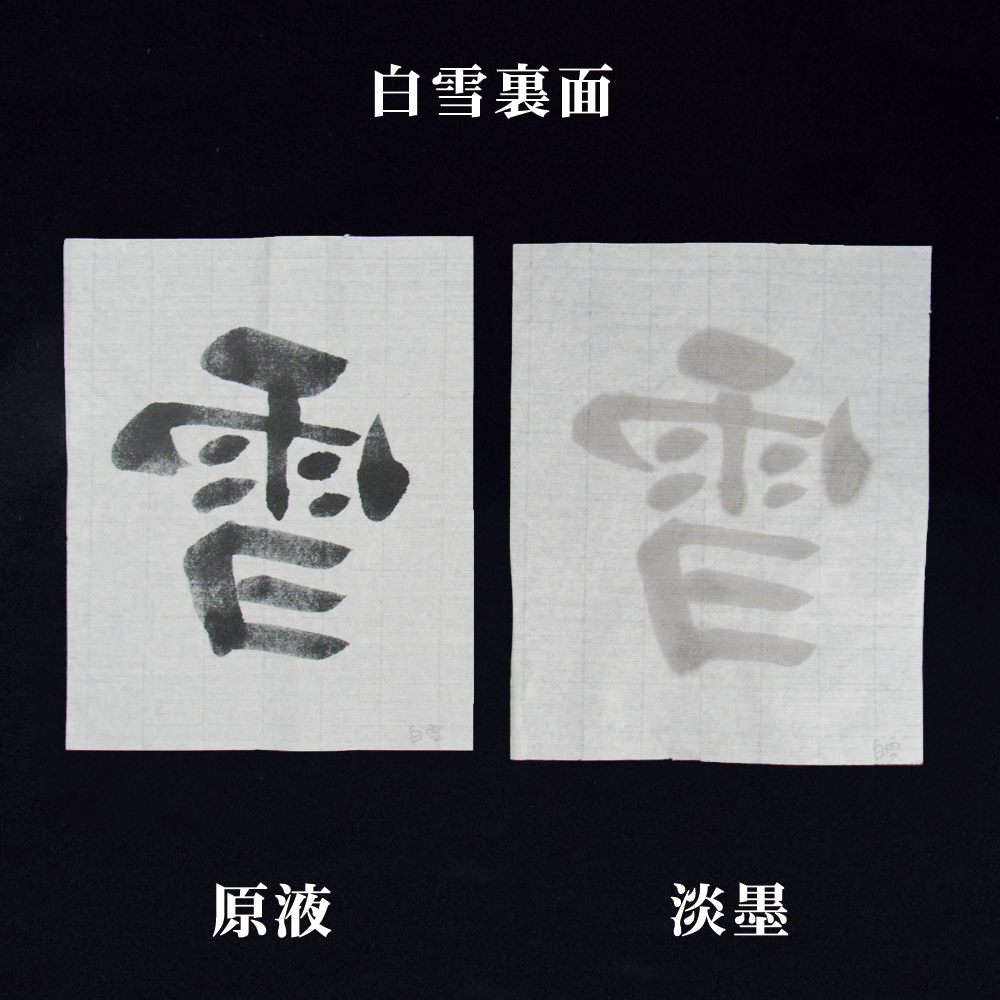 白雪裏面
雪
雪
白雪
白雪
原液
淡墨